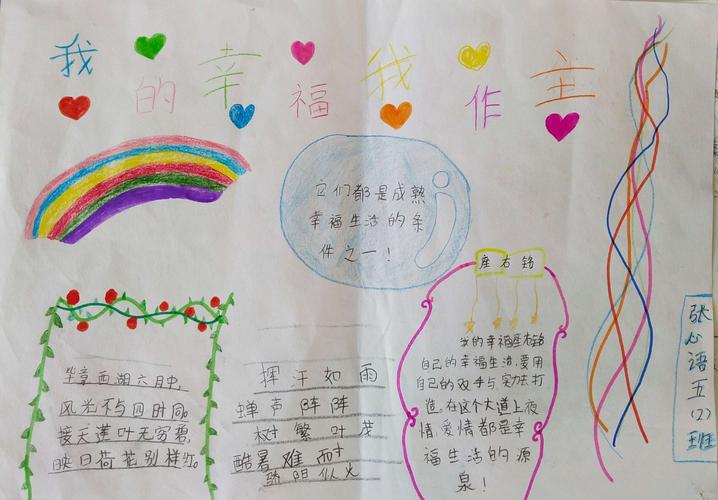 我的幸福我作主
它们都是成熟
幸福生活的条
件之一！
座右铭
的幸福座右铭
自己的幸福生活,要用
自己的双手与实力去打
造。在这个大道上友
情,爱情都是幸
福生活的源
泉！
毕竟西湖六月中,
风光不与四时同。
接天莲叶无穷碧,
映日荷花别样红。
挥汗如雨
蝉声阵阵
树繁叶茂
酷暑难耐
骄阳似火
张心语五(2)班